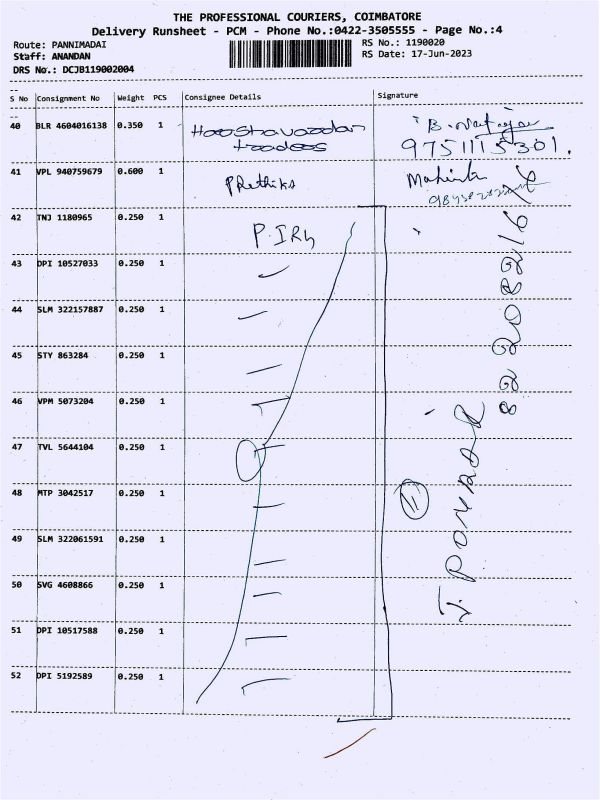 THE PROFESSIONAL COURIERS, COIMBATORE
Delivery Runsheet - PCM - Phone No.:0422-3505555 - Page No.:4
Route: PANNIMADAI
RS No.: 1190020
Staff: ANANDAN
RS Date: 17-Jun-2023
DRS No.: DCJB119002004
S No Consignment No Weight PCS Consignee Details Signature
40 BLR 4604016138 0.350 1
traders
9751115301.
41 VPL 940759679 0.600 1 Prethika
42 TNJ 1180965 0.250 1
43 DPI 10527033 0.250 1
44 SLM 322157887 0.250 1
45 STY 863284 0.250 1
46 VPM 5073204 0.250 1
47 TVL 5644104 0.250 1
48 MTP 3042517 0.250 1
49 SLM 322061591 0.250 1
50 SVG 4608866 0.250 1
51 DPI 10517588 0.250 1
52 DPI 5192589 0.250 1
11